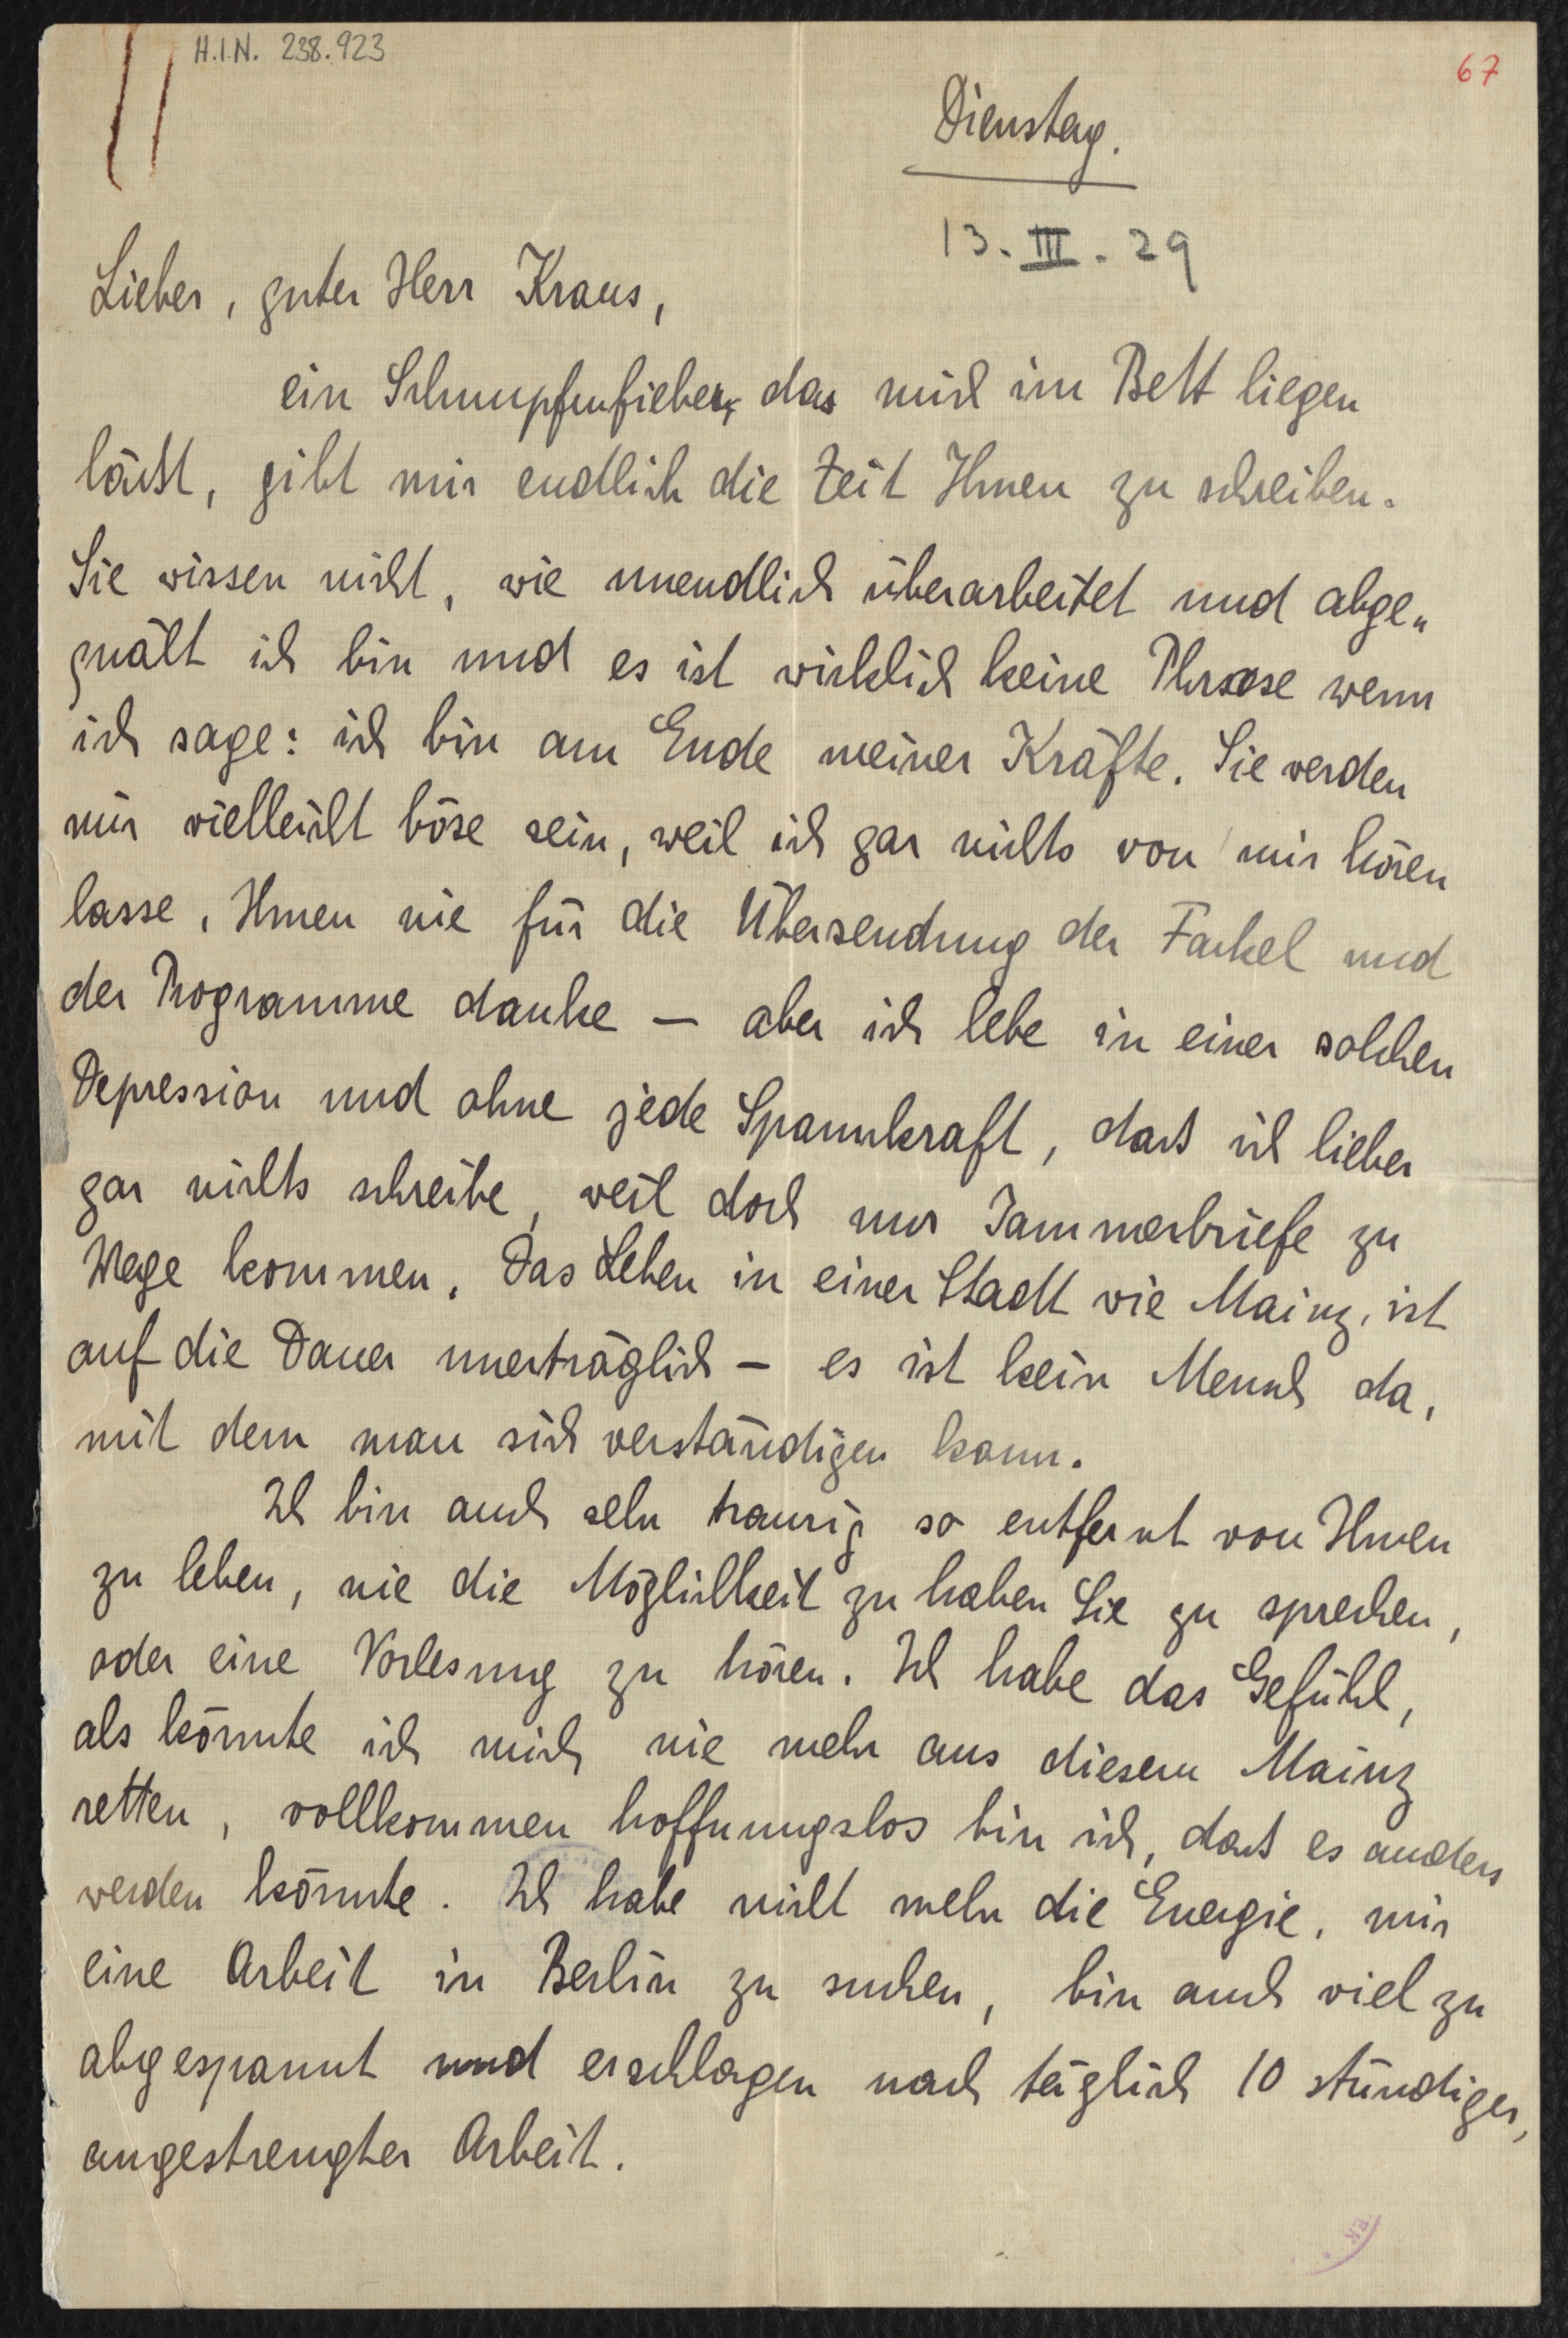 H.I.N. 238.923
67
Dienstag.
13. III. 29
Lieber, guter Herr Kraus,
ein Schnupfenfieber, das mich im Bett liegen
läßt, gibt mir endlich die Zeit Ihnen zu schreiben.
Sie wissen nicht, wie unendlich überarbeitet und abge„
quält ich bin und es ist wirklich keine Phrase wenn
ich sage: ich bin am Ende meiner Kräfte. Sie werden
mir vielleicht böse sein, weil ich gar nichts von mir hören
lasse, Ihnen nie für die Übersendung der Fackel und
der Programme danke — aber ich lebe in einer solchen
Depression und ohne jede Spannkraft, daß ich lieber
gar nichts schreibe, weil doch nur Jammerbriefe zu
Wege kommen. Das Leben in einer Stadt wie Mainz, ist
auf die Dauer unerträglich — es ist kein Mensch da,
mit dem man sich verständigen kann.
Ich bin auch sehr traurig so entfernt von Ihnen
zu leben, nie die Möglichkeit zu haben Sie zu sprechen,
oder eine Vorlesung zu hören. Ich habe das Gefühl,
als könnte ich mich nie mehr aus diesem Mainz
retten, vollkommen hoffnungslos bin ich, daß es anders
werden könnte. Ich habe nicht mehr die Energie, mir
eine Arbeit in Berlin zu suchen, bin auch viel zu
abgespannt und erschlagen nach täglich 10 stündiger,
angestrengter Arbeit.